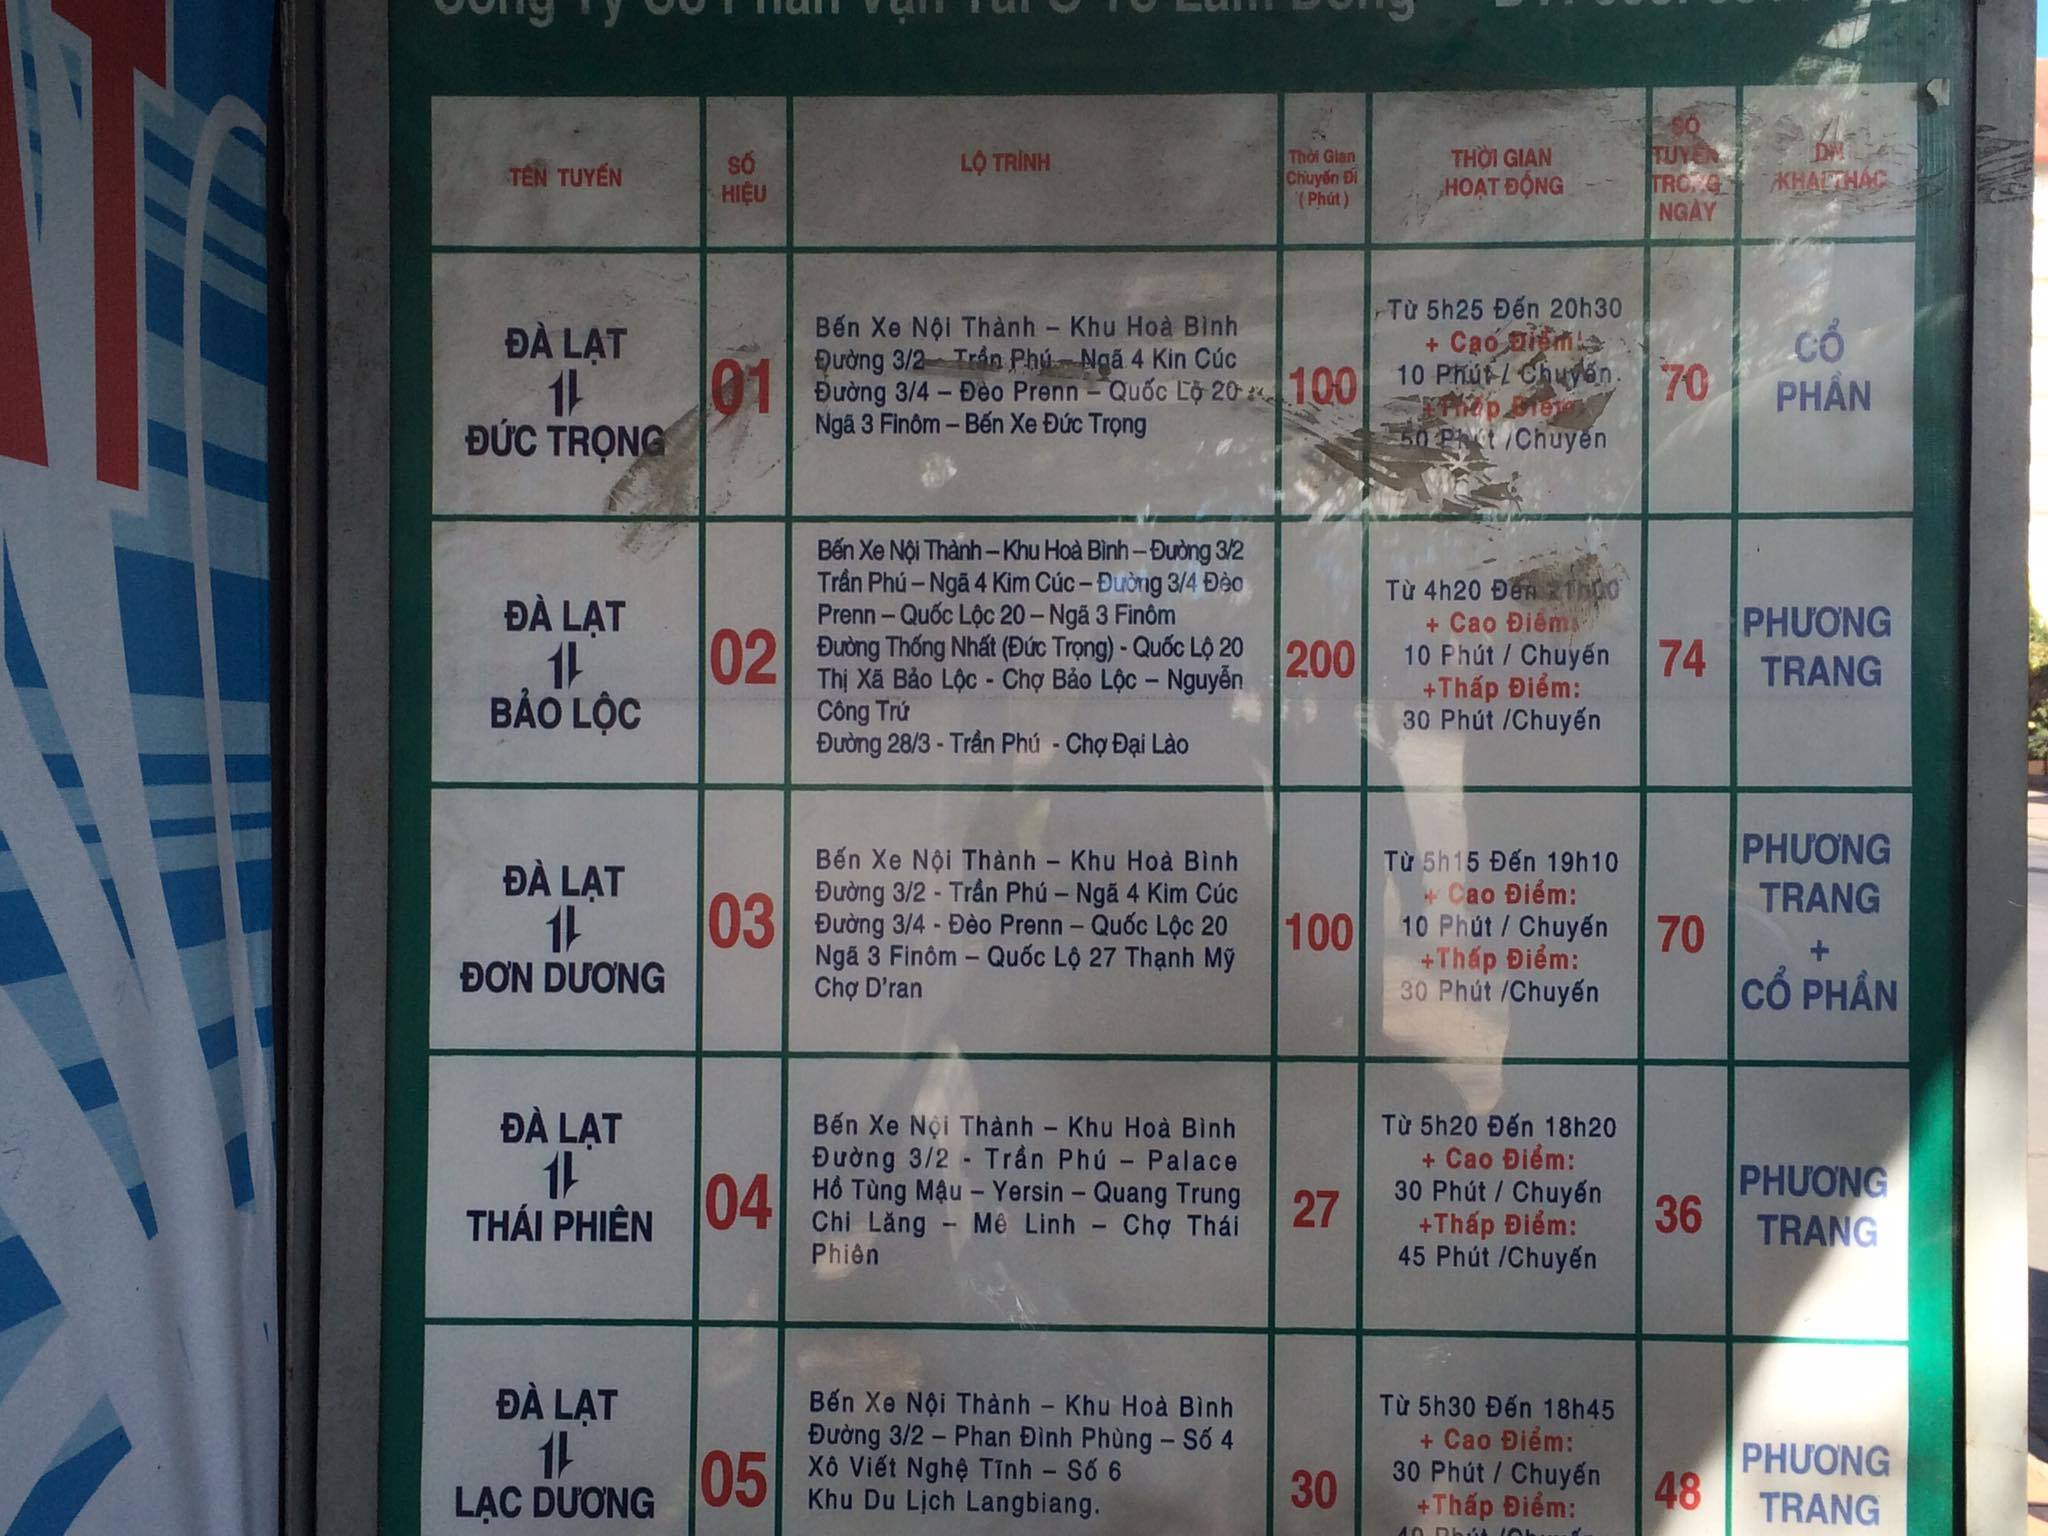 Công Ty Cổ Phần Vận Tải Ô Tô Lâm Đồng
TÊN TUYẾN
SỐ
HIỆU
LỘ TRÌNH
Thời Gian
Chuyến Đi
( Phút )
THỜI GIAN
HOẠT ĐỘNG
SỐ
TUYẾN
TRONG
NGÀY
DN
KHAI THÁC
ĐÀ LẠT
ĐỨC TRỌNG
01
Bến Xe Nội Thành – Khu Hoà Bình
Đường 3/2 – Trần Phú – Ngã 4 Kin Cúc
Đường 3/4 – Đèo Prenn – Quốc Lộ 20
Ngã 3 Finôm – Bến Xe Đức Trọng
100
Từ 5h25 Đến 20h30
+ Cao Điểm:
10 Phút / Chuyến
+Thấp Điểm:
Phút /Chuyến
70
CỔ
PHẦN
ĐÀ LẠT
BẢO LỘC
02
Bến Xe Nội Thành – Khu Hoà Bình – Đường 3/2
Trần Phú – Ngã 4 Kim Cúc – Đường 3/4 Đèo
Prenn – Quốc Lộc 20 – Ngã 3 Finôm
Đường Thống Nhất (Đức Trọng) - Quốc Lộ 20
Thị Xã Bảo Lộc - Chợ Bảo Lộc – Nguyễn
Công Trứ
Đường 28/3 - Trần Phú - Chợ Đại Lào
200
Từ 4h20 Đến 21h00
+ Cao Điểm:
10 Phút / Chuyến
+Thấp Điểm:
30 Phút /Chuyến
74
PHƯƠNG
TRANG
ĐÀ LẠT
ĐƠN DƯƠNG
03
Bến Xe Nội Thành – Khu Hoà Bình
Đường 3/2 - Trần Phú – Ngã 4 Kim Cúc
Đường 3/4 - Đèo Prenn – Quốc Lộc 20
Ngã 3 Finôm – Quốc Lộ 27 Thạnh Mỹ
Chợ D'ran
100
Từ 5h15 Đến 19h10
+ Cao Điểm:
10 Phút / Chuyến
+Thấp Điểm:
30 Phút /Chuyến
70
PHƯƠNG
TRANG
+
CỔ PHẦN
ĐÀ LẠT
THÁI PHIÊN
04
Bến Xe Nội Thành – Khu Hoà Bình
Đường 3/2 - Trần Phú – Palace
Hồ Tùng Mậu – Yersin – Quang Trung
Chi Lăng – Mê Linh – Chợ Thái
Phiên
27
Từ 5h20 Đến 18h20
+ Cao Điểm:
30 Phút / Chuyến
+Thấp Điểm:
45 Phút /Chuyến
36
PHƯƠNG
TRANG
ĐÀ LẠT
LẠC DƯƠNG
05
Bến Xe Nội Thành – Khu Hoà Bình
Đường 3/2 – Phan Đình Phùng – Số 4
Xô Viết Nghệ Tĩnh – Số 6
Khu Du Lịch Langbiang.
30
Từ 5h30 Đến 18h45
+ Cao Điểm:
30 Phút / Chuyến
+Thấp Điểm:
40 Phút /Chuyến
48
PHƯƠNG
TRANG